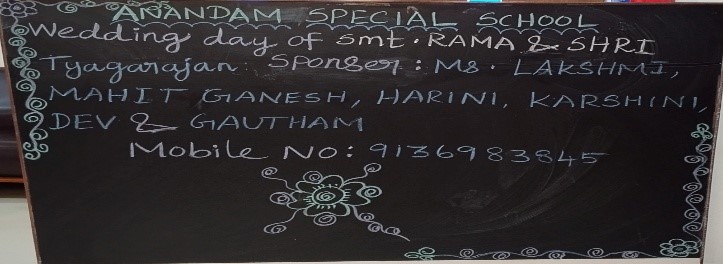 ANANDAM SPECIAL SCHOOL
Wedding day of Smt. RAMA & SHRI
Tyagarajan: Sponser: Ms. LAKSHMI,
MAHIT GANESH, HARINI, KARSHINI,
DEV & GAUTHAM
Mobile NO: 9136983845